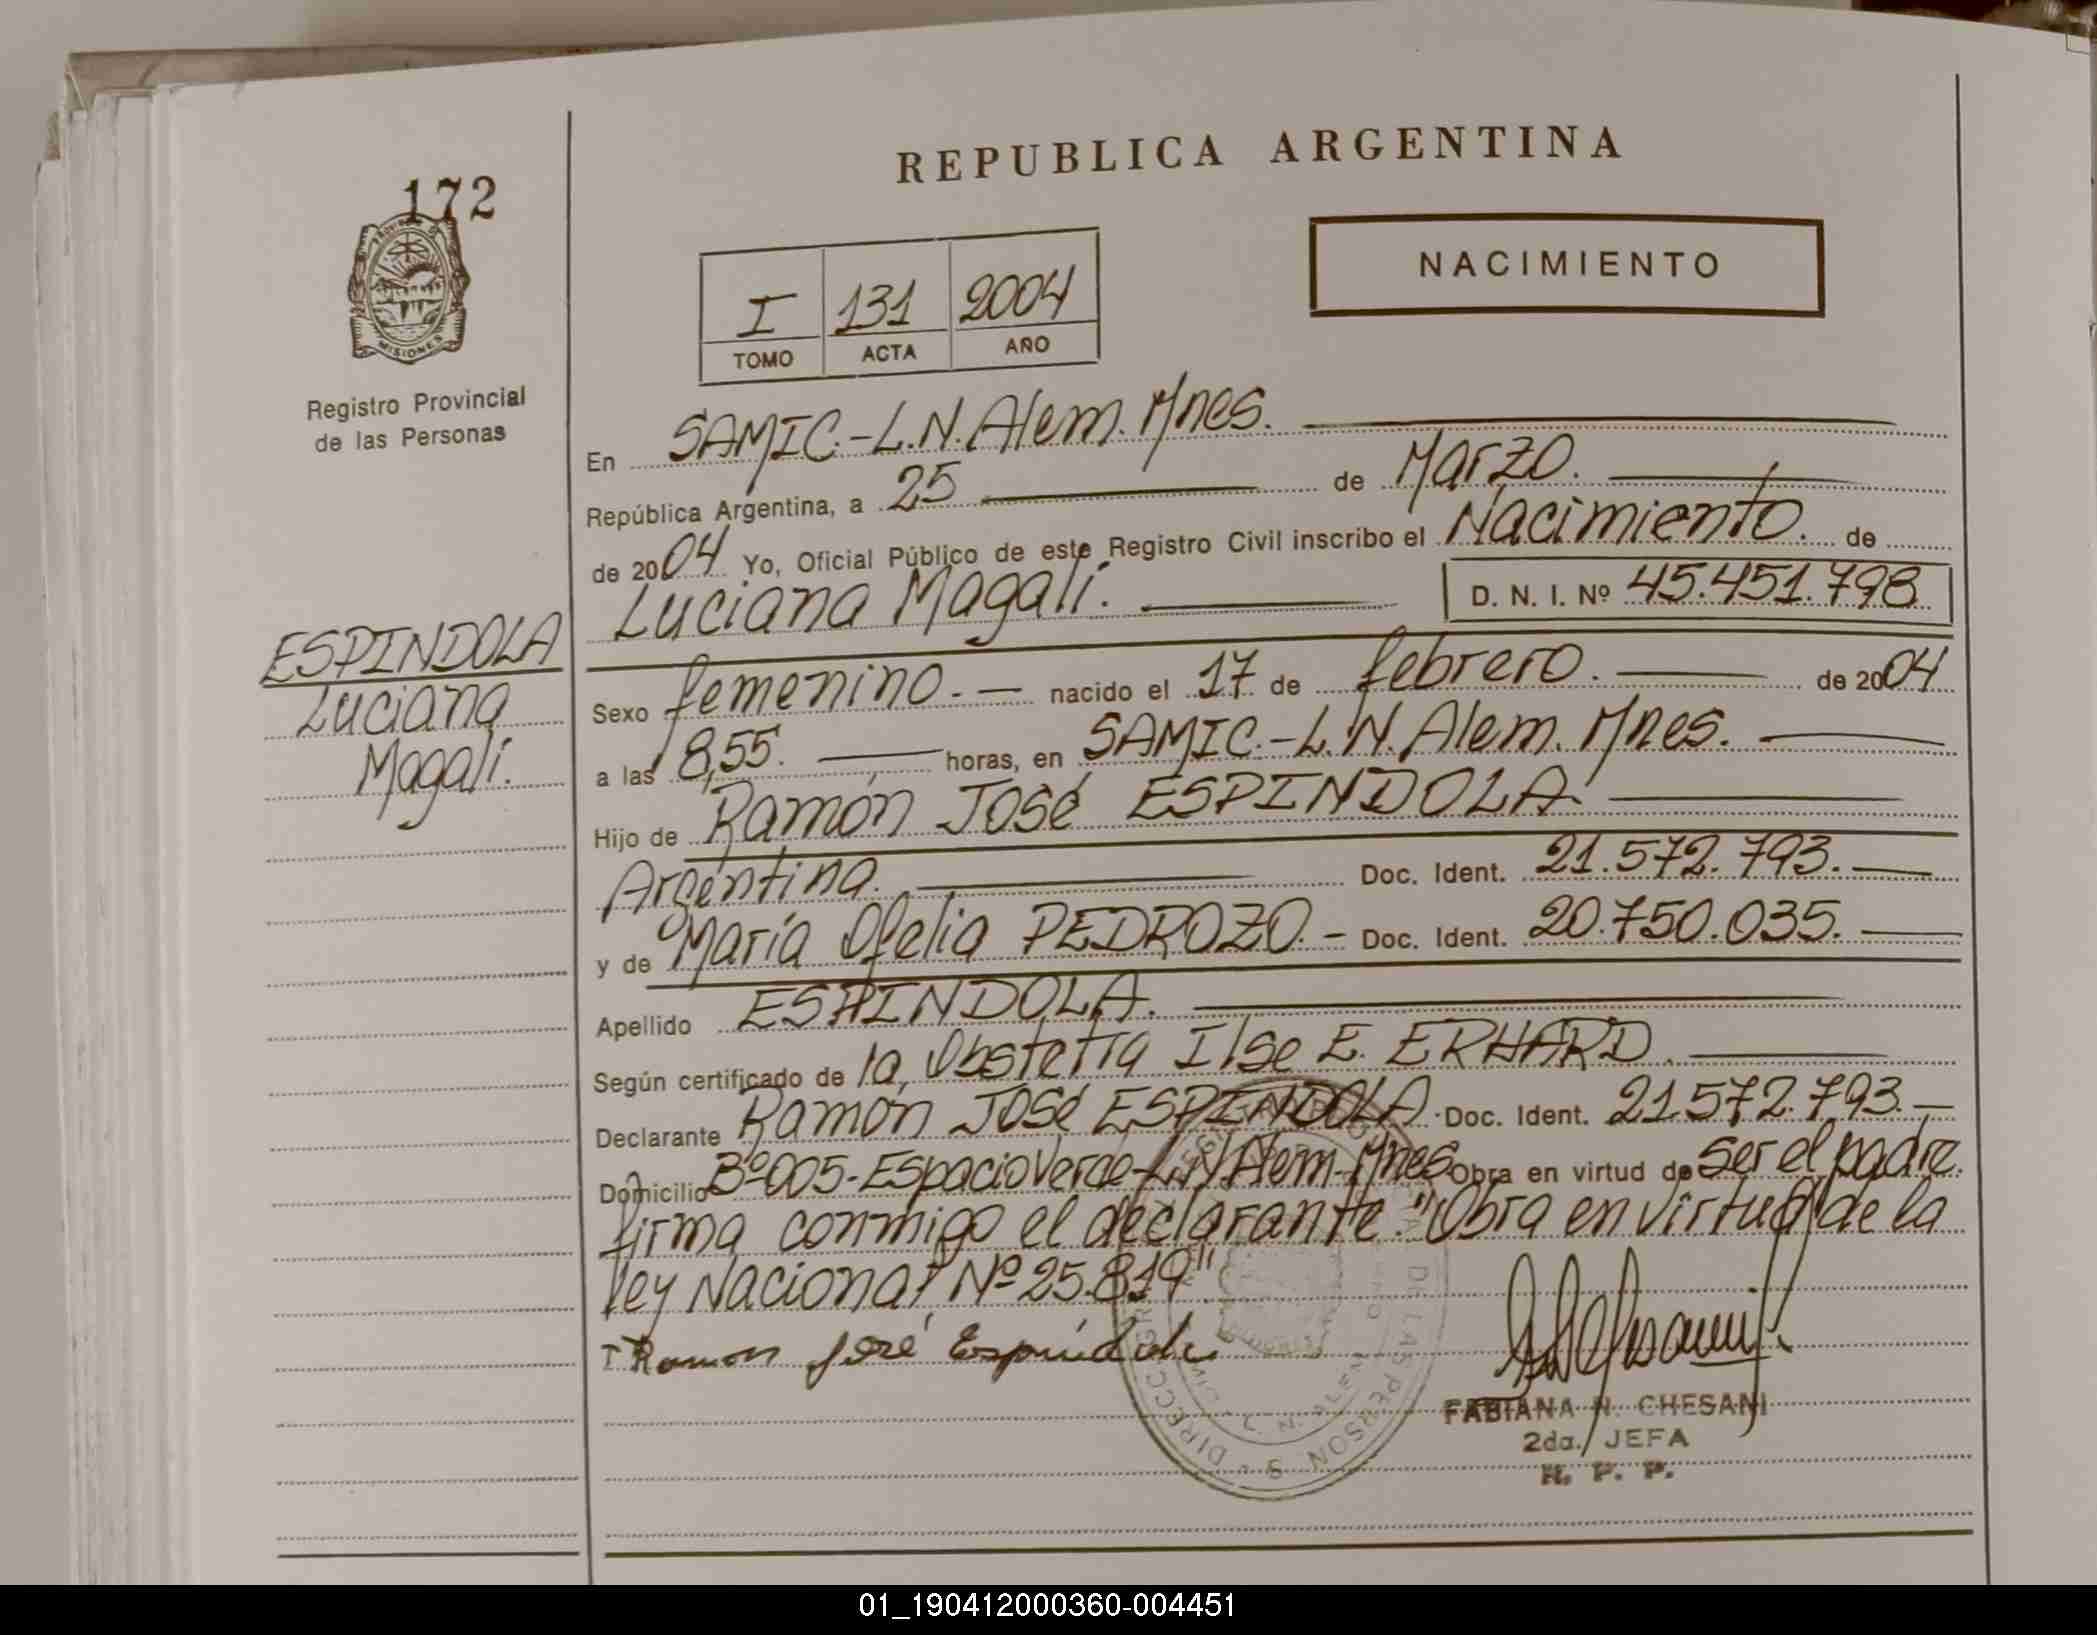 172
MISIONES
Registro Provincial
de las Personas
REPUBLICA ARGENTINA
NACIMIENTO
I 131 2004
TOMO ACTA AÑO
En SAMIC.-L.N.Alem.Mnes.
República Argentina, a 25 de Marzo.
de 2004 Yo, Oficial Público de este Registro Civil inscribo el Nacimiento. de
Luciana Magalí. D. N. I. Nº 45.451.798
ESPINDOLA
Luciana
Magalí.
Sexo femenino.- nacido el 17 de febrero. de 2004
a las 8,55. horas, en SAMIC.-L.N.Alem. Mnes.
Hijo de Ramón José ESPINDOLA
Argentina. Doc. Ident. 21.572.793.
y de María Ofelia PEDROZO.- Doc. Ident. 20.750.035.
Apellido ESPINDOLA.
Según certificado de la, Obstetra Ilse E. ERHARD.
Declarante Ramón José ESPINDOLA. Doc. Ident. 21.572.793.-
Domicilio Bº005-Espacio Verde-L.N.Alem-Mnes Obra en virtud de ser el padre.
firma conmigo el declarante."Obra en virtud de la
ley Nacional Nº 25.819".
Ramon José Espíndola
FABIANA N. CHESANI
2da. JEFA
R. P. P.
01_190412000360-004451